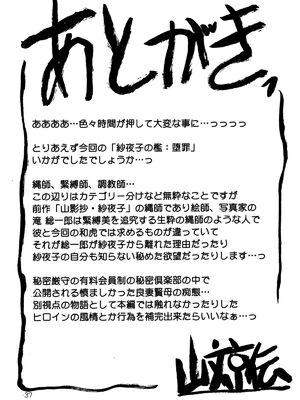 あとがき、
ああああ…色々時間が押して大変な事に…っっっっ
とりあえず今回の「紗夜子の檻：堕罪」
いかがでしたでしょうか…っ
縄師、緊縛師、調教師…
この辺りはカテゴリー分けなど無粋なことですが
前作「山影抄・紗夜子」の縄師であり絵師、写真家の
滝 総一郎は緊縛美を追究する生粋の縄師のような人で
彼と今回の和虎では求めるものが違っていて
それが総一郎が紗夜子から離れた理由だったり
紗夜子の自分も知らない秘めた欲望だったりします…っ
秘密厳守の有料会員制の秘密倶楽部の中で
公開される慎ましかった良妻賢母の痴態…
別視点の物語として本編では触れなかったりした
ヒロインの風情とか行為を補完出来たらいいなぁ…っ
37